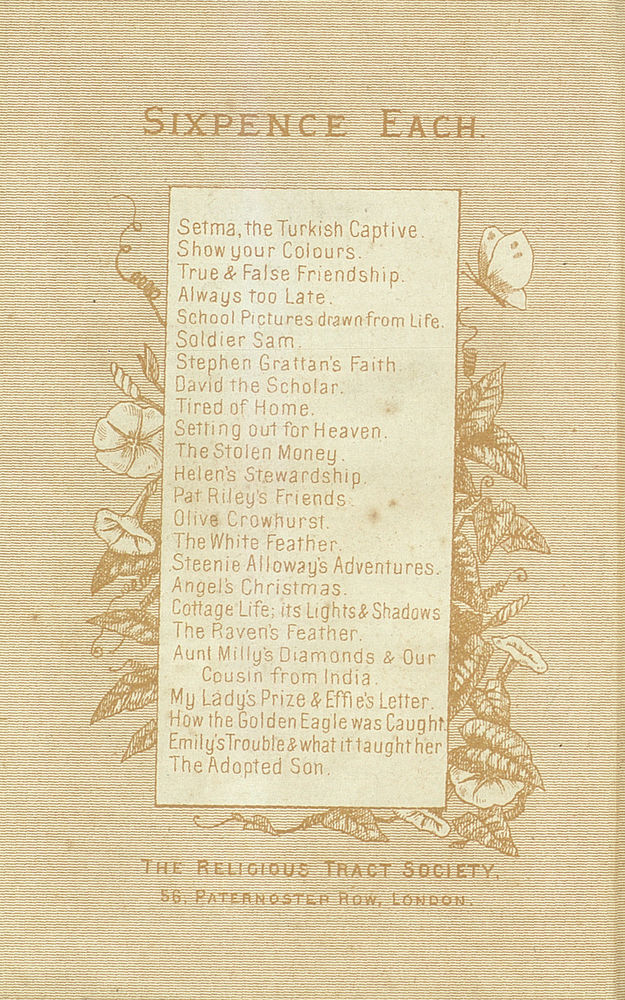 SIXPENCE EACH.
Setma, the Turkish Captive.
Show your Colours.
True & False Friendship.
Always too Late.
School Pictures drawn from Life.
Soldier Sam.
Stephen Grattan's Faith.
David the Scholar.
Tired of Home.
Setting out for Heaven.
The Stolen Money.
Helen's Stewardship.
Pat Riley's Friends.
Olive Crowhurst.
The White Feather.
Steenie Alloway's Adventures.
Angel's Christmas.
Cottage Life; its Lights & Shadows
The Raven's Feather.
Aunt Milly's Diamonds & Our
Cousin from India.
My Lady's Prize & Effie's Letter.
How the Golden Eagle was Caught.
Emily's Trouble & what it taught her
The Adopted Son.
THE RELIGIOUS TRACT SOCIETY,
56, PATERNOSTER ROW, LONDON.